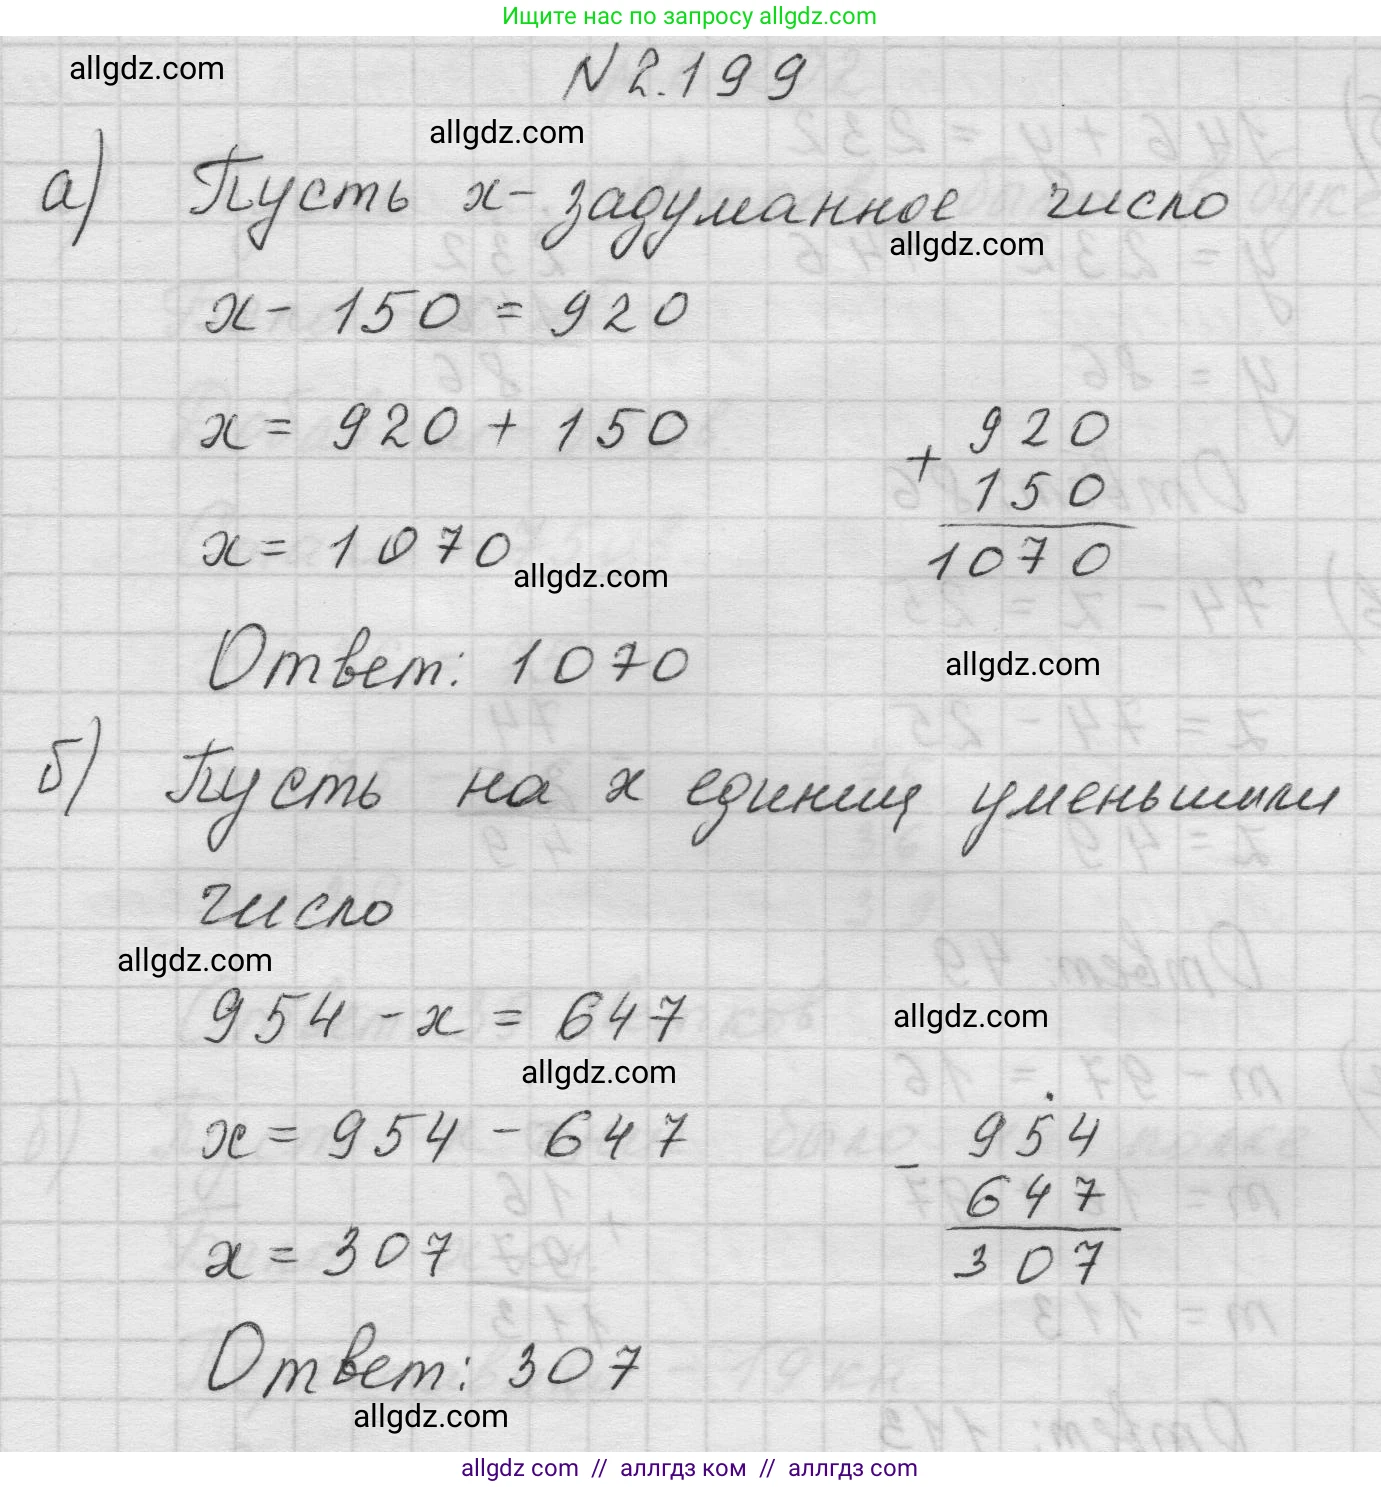 Ищите нас по запросу allgdz.com
allgdz.com
N 2.199
allgdz.com
а) Пусть x - задуманное число
allgdz.com
x - 150 = 920
x = 920 + 150
920
+
150
1070
x = 1070
allgdz.com
Ответ: 1070
allgdz.com
б) Пусть на x единиц уменьшили
число
allgdz.com
954 - x = 647
allgdz.com
allgdz.com
x = 954 - 647
954
-
647
307
x = 307
Ответ: 307
allgdz.com
allgdz com // аллгдз ком // аллгдз com